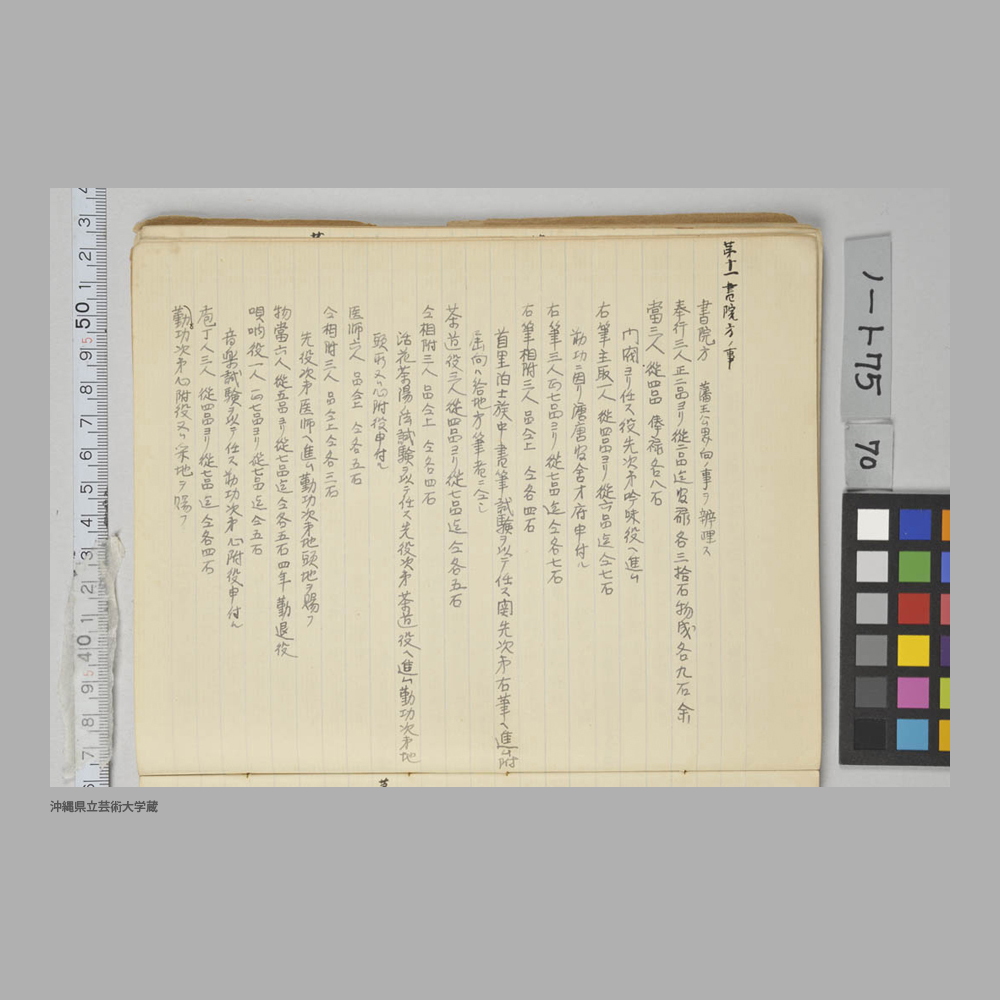 第十一 書院方ノ事
書院方 藩王公界向ノ事ヲ辨理ス
奉行三人正二品ヨリ從二品迄 各三拾石物成各九石余
當三人 從四品 俸禄各八石
門閥ヨリ任ス役先次第吟味役ヘ進ム
右筆主取一人 從四品ヨリ從六品迄仝七石
勤功ニ因リ 申付ル
右筆三人 七品ヨリ從七品迄仝各七石
右筆相附三人 品仝上 仝各四石
首里泊士族中書筆試験ヲ以テ任ス 先次第右筆ヘ進ム附
向ハ各地方筆者ニ仝シ
茶道役三人 從四品ヨリ從七品迄 仝各五石
仝相附三人 品仝上 仝各四石
活花茶湯法試験ヲ以テ任ス先役次第茶道役ヘ進ム勤功次第地
頭所又ハ心附役申付ル
医師 人 品仝上 仝各五石
仝相附三人 品仝上仝各三石
先役次第医師ヘ進ム勤功次第地頭地ヲ賜フ
物當六人 從五品ヨリ從七品迄仝各五石四年勤退役
唄吶役一人 七品ヨリ從七品迄仝五石
音楽試験ヲ以テ任ス勤功次第心附役申付ル
庖丁人三人 從四品ヨリ從七品迄仝各四石
勤功次第心附役又ハ采地ヲ賜フ
ノート75
70
沖縄県立芸術大学蔵